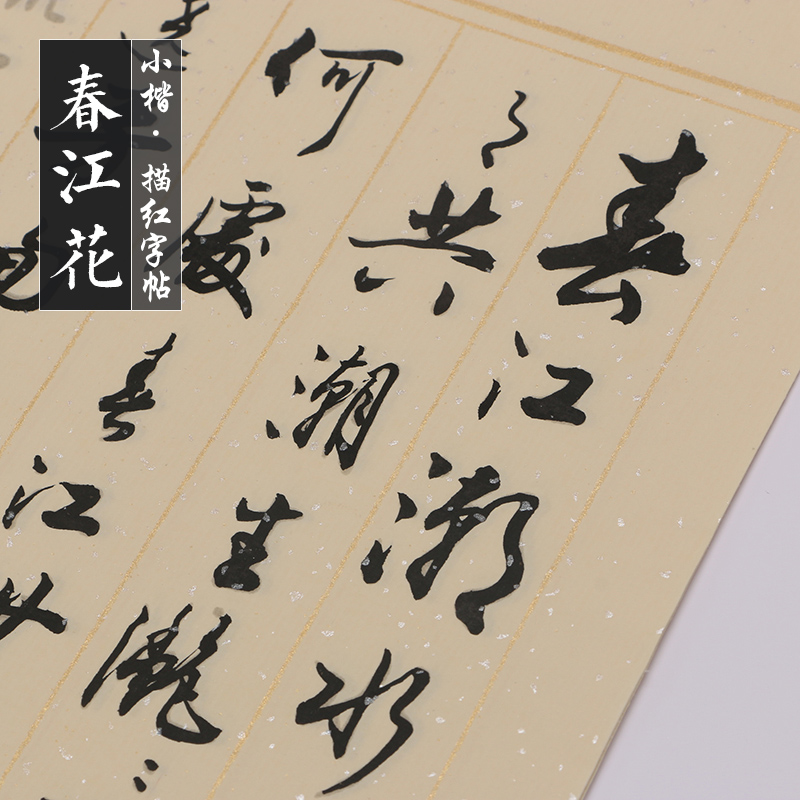 春江花
小楷·描红字帖
春江潮水
共潮生灩
何處春江